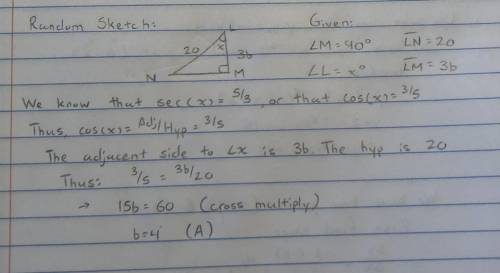 Random Sketch:
Given:
L
20
x
3b
N
M
∠M=90° L̅N̅=20
∠L=x° L̅M̅=3b
We know that sec(x)=5/3, or that cos(x)=3/5
Thus, cos(x)=Adj/Hyp=3/5
The adjacent side to ∠x is 3b. The hyp is 20
Thus: 3/5 = 3b/20
→ 15b=60 (cross multiply)
b=4 (A)